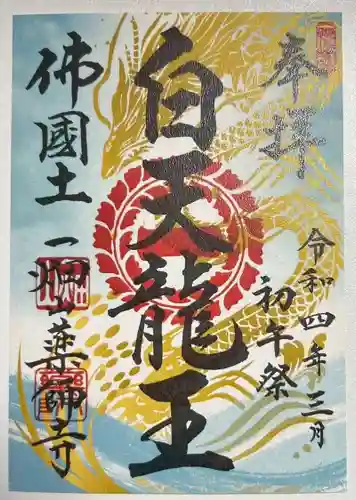 奉拝
令和四年三月
初午祭
白天龍王
佛國土
一畑山薬師寺